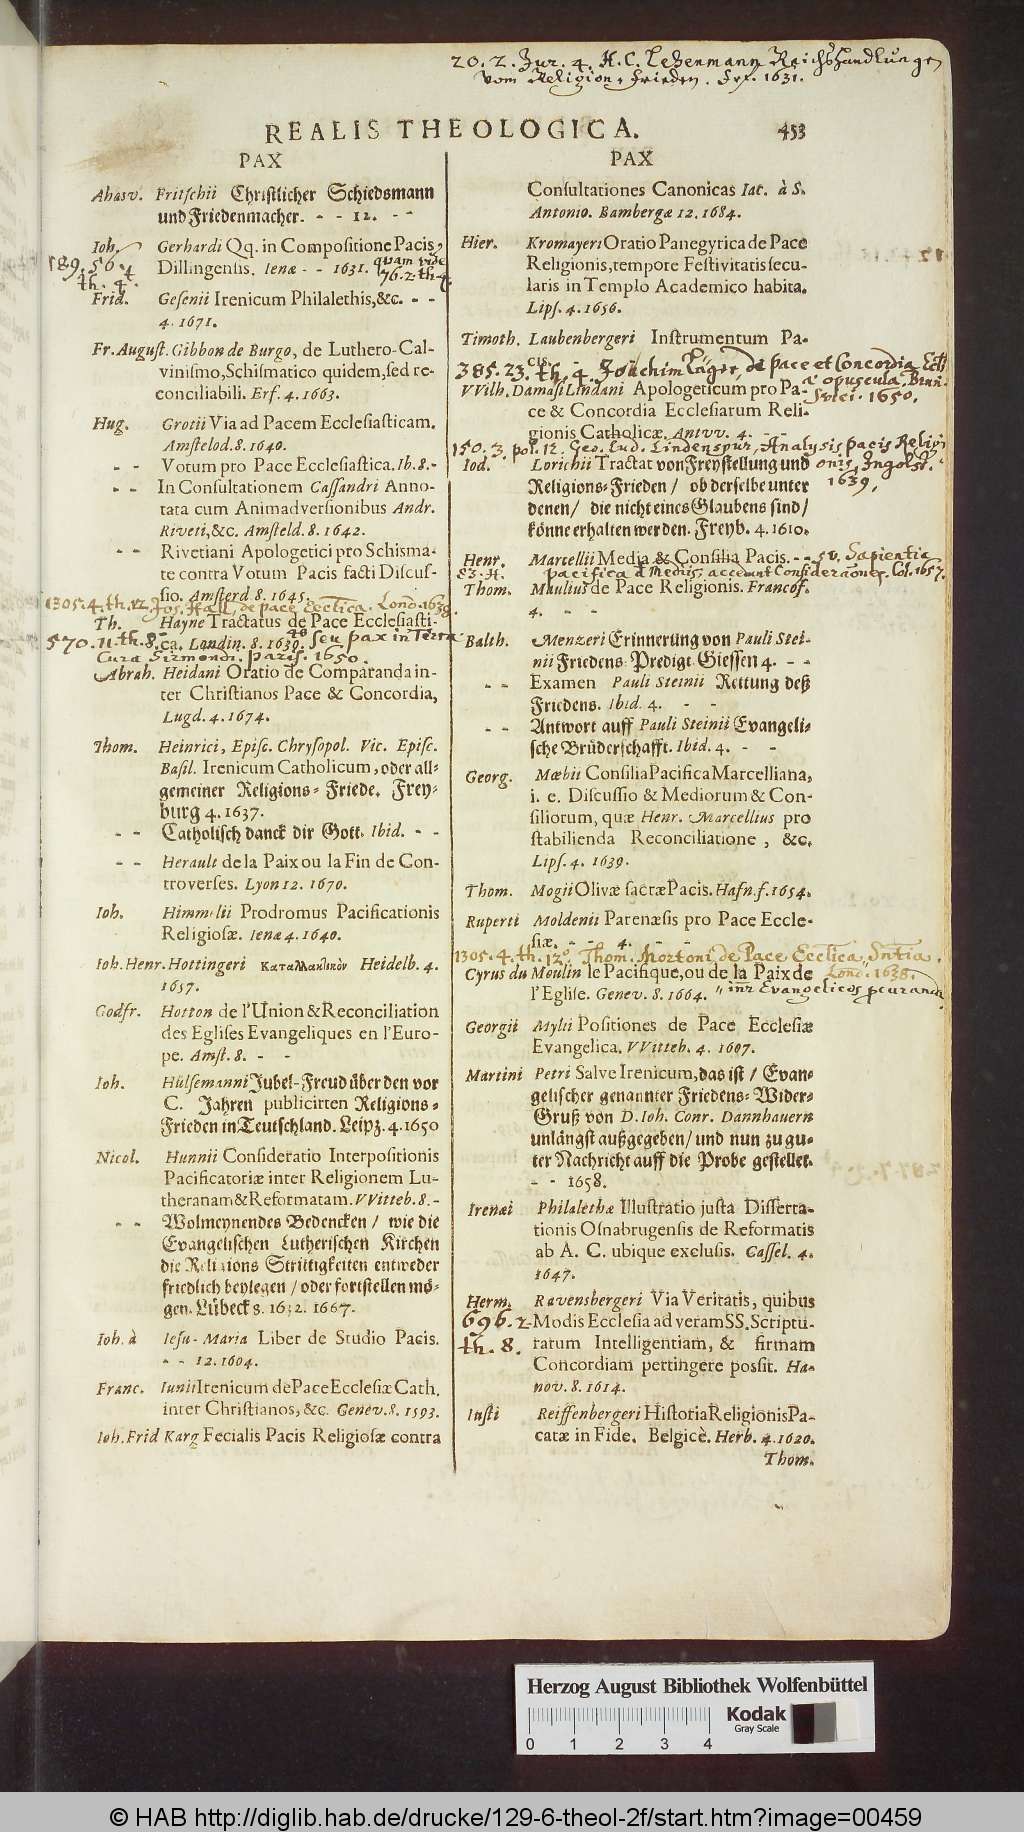 20. 2. Jur. 4. H. C. Lehenmann Reichshandlungen
vom Religions-frieden. Frf. 1631.
REALIS THEOLOGICA. 453
PAX
Ahasv. Fritschii Christlicher Schiedsmann
und Friedenmacher. - - 12. - -
Ioh. Gerhardi Qq. in Compositione Pacis
189. 56. 4 Dillingensis. Ienæ - - 1631. quam vide
th. 4. 76. 2. th. 4.
Frid. Gesenii Irenicum Philalethis, &c. - -
4. 1671.
Fr. August. Gibbon de Burgo, de Luthero-Cal-
vinismo, Schismatico quidem, sed re-
conciliabili. Erf. 4. 1663.
Hug. Grotii Via ad Pacem Ecclesiasticam.
Amstelod. 8. 1640.
- - Votum pro Pace Ecclesiastica. Ib. 8. -
- - In Consultationem Cassandri Anno-
tata cum Animadversionibus Andr.
Riveti, &c. Amsteld. 8. 1642.
- - Rivetiani Apologetici pro Schisma-
te contra Votum Pacis facti Discus-
sio. Amsterd 8. 1645.
1305. 4. th. 12. Jos. Hall, de pace Ecctica. Lond. 1638.
Th. Hayne Tractatus de Pace Ecclesiasti-
570. 11. th. 8. ca. Londin. 8. 1639. seu pax in Terra
Cura Sirmondi. Paris. 1650.
Abrah. Heidani Oratio de Comparanda in-
ter Christianos Pace & Concordia,
Lugd. 4. 1674.
Thom. Heinrici, Episc. Chrysopol. Vic. Episc.
Basil. Irenicum Catholicum, oder all-
gemeiner Religions-Friede. Frey-
burg 4. 1637.
- - Catholisch danck dir Gott. Ibid. - -
- - Herault de la Paix ou la Fin de Con-
troverses. Lyon 12. 1670.
Ioh. Himmelii Prodromus Pacificationis
Religiosæ. Ienæ 4. 1640.
Ioh. Henr. Hottingeri Καταλλακτικὸν Heidelb. 4.
1657.
Godfr. Hotton de l'Union & Reconciliation
des Eglises Evangeliques en l'Euro-
pe. Amst. 8. - -
Ioh. Hülsemanni Jubel-Freud über den vor
C. Jahren publicirten Religions-
Frieden in Teutschland. Leipz. 4. 1650
Nicol. Hunnii Consideratio Interpositionis
Pacificatoriæ inter Religionem Lu-
theranam & Reformatam. VVitteb. 8. -
- - Wolmeynendes Bedencken / wie die
Evangelischen Lutherischen Kirchen
die Religions Strittigkeiten entweder
friedlich beylegen / oder fortstellen mö-
gen. Lübeck 8. 1632. 1667.
Ioh. à Iesu-Maria Liber de Studio Pacis.
- - 12. 1604.
Franc. Iunii Irenicum de Pace Ecclesiæ Cath.
inter Christianos, &c. Genev. 8. 1593.
Ioh. Frid Karg Fecialis Pacis Religiosæ contra
PAX
Consultationes Canonicas Iac. à S.
Antonio. Bambergæ 12. 1684.
Hier. Kromayeri Oratio Panegyrica de Pace
Religionis, tempore Festivitatis secu-
laris in Templo Academico habita.
Lips. 4. 1656.
Timoth. Laubenbergeri Instrumentum Pa-
cis. - -
385. 23. th. 4. Joachim Läger, de pace et Concordia Eccl.
VVilh. Damasi Lindani Apologeticum pro Pa- opuscula. Brun.
ce & Concordia Ecclesiarum Reli- 1650.
gionis Catholicæ. Antvv. 4. - -
150. 3. pol. 12. Geo. Lud. Lindenspür, Analysis pacis Religi-
Iod. Lorichii Tractat von Freystellung und onis, Ingolst.
Religions-Frieden / ob derselbe unter 1639.
denen / die nicht eines Glaubens sind /
könne erhalten werden. Freyb. 4. 1610.
Henr. Marcellii Media & Consilia Pacis. - - sv. Sapientia
83. H. pacifica d Mediis, accedunt Considerationes. Col. 1657.
Thom. Maulius de Pace Religionis. Francof.
4. - -
Balth. Menzeri Erinnerung von Pauli Stei-
nii Friedens-Predigt Giessen 4. - -
- - Examen Pauli Steinii Rettung deß
Friedens. Ibid. 4. - -
- - Antwort auff Pauli Steinii Evangeli-
sche Brüderschafft. Ibid. 4. - -
Georg. Mœbii Consilia Pacifica Marcelliana,
i. e. Discussio & Mediorum & Con-
siliorum, quæ Henr. Marcellius pro
stabilienda Reconciliatione, &c.
Lips. 4. 1639.
Thom. Mogii Olivæ sacræ Pacis. Hafn. f. 1654.
Ruperti Moldenii Parenæsis pro Pace Eccle-
siæ. - - 4. - -
1305. 4. th. 12. Thom. Mortoni, de Pace Ecctica, Sntia.
Cyrus du Moulin le Pacifique, ou de la Paix de Lond. 1638.
l'Eglise. Genev. 8. 1664. inr Evangelicos pcuranda
Georgii Mylii Positiones de Pace Ecclesiæ
Evangelica. VVitteb. 4. 1607.
Martini Petri Salve Irenicum, das ist / Evan-
gelischer genannter Friedens-Wider-
Gruß von D. Ioh. Conr. Dannhauern
unlängst außgegeben / und nun zu gu-
ter Nachricht auff die Probe gestellet.
- - 1658.
Irenæi Philalethæ Illustratio justa Disserta-
tionis Osnabrugensis de Reformatis
ab A. C. ubique exclusis. Cassel. 4.
1647.
Herm. Ravensbergeri Via Veritatis, quibus
696. 2. Modis Ecclesia ad veram SS. Scriptu-
th. 8. rarum Intelligentiam, & firmam
Concordiam pertingere possit. Ha-
nov. 8. 1614.
Iusti Reiffenbergeri Historia Religionis Pa-
catæ in Fide. Belgicè. Herb. 4. 1620.
Thom.
Herzog August Bibliothek Wolfenbüttel
Kodak
Gray Scale
0 1 2 3 4
© HAB http://diglib.hab.de/drucke/129-6-theol-2f/start.htm?image=00459